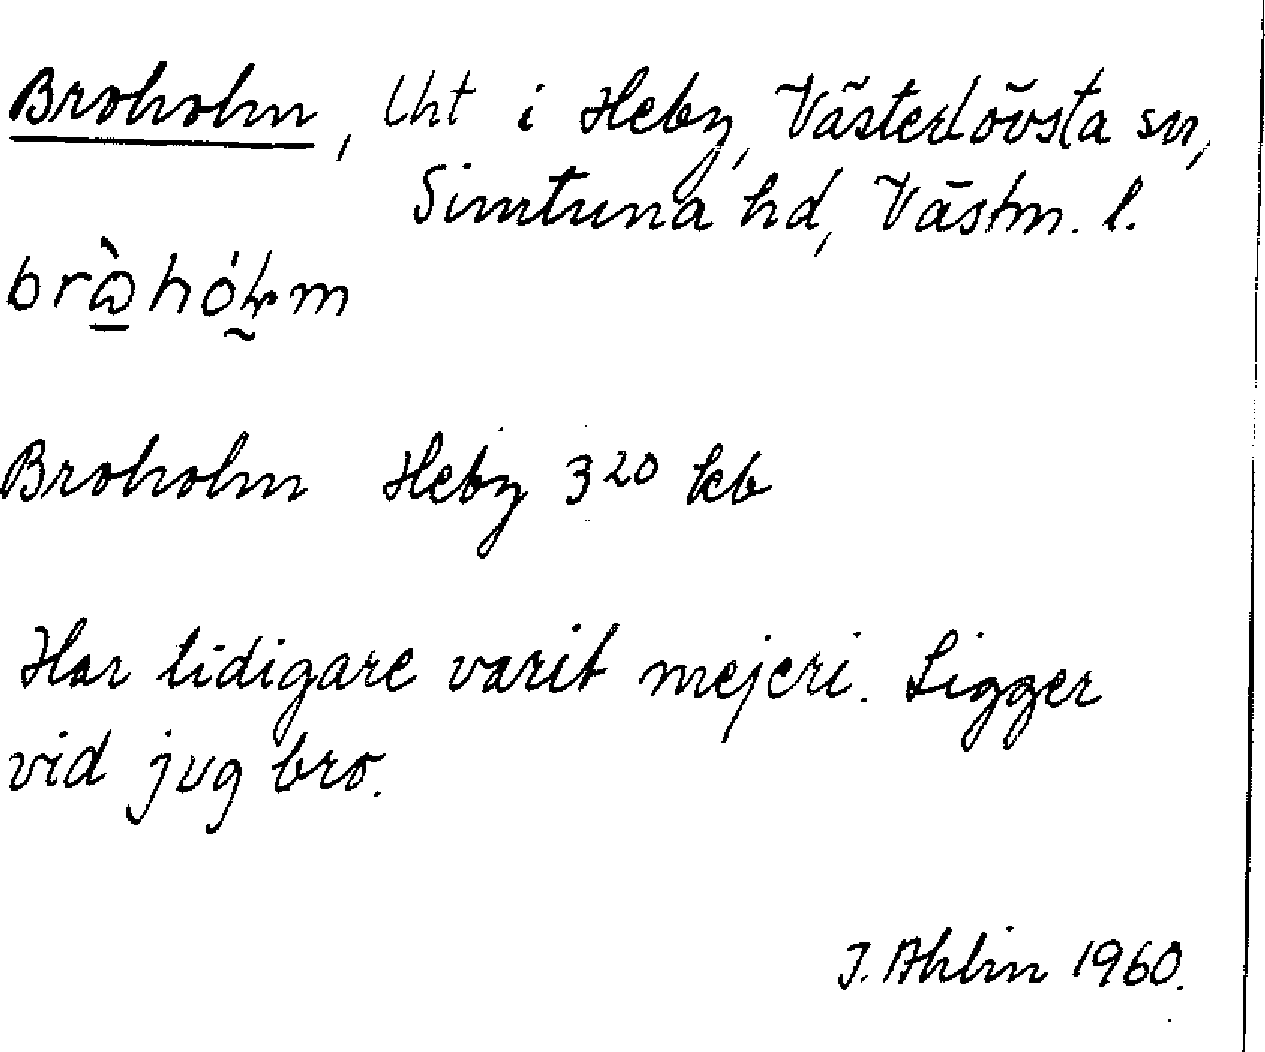 Broholm, lht i Heby, Västerlövsta sn,
Simtuna hd, Västm. l.
Broholm Heby 3²⁰ kb
Har tidigare varit mejeri. Ligger
vid jvg bro.
J. Ahlin 1960.